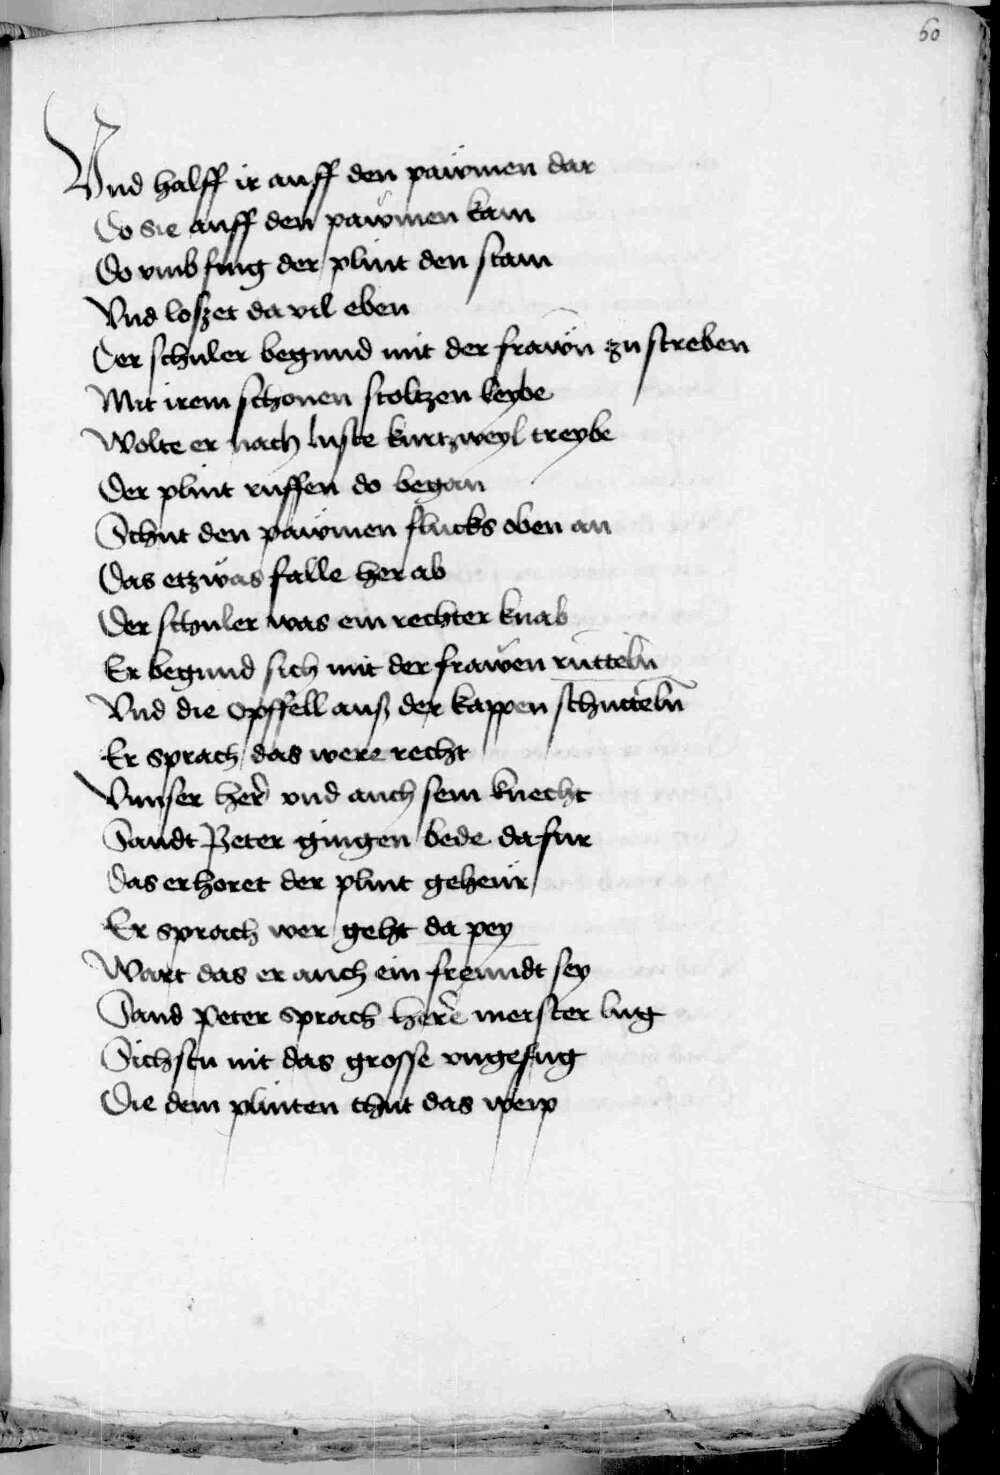 60
Vnd halff ir auff den pawmen dar
Do sie auff den pawmen kam
Do vmbfing der plint den stam
Vnd loszet da vil eben
Der schuler begund mit der frawen zu streben
Mit irem schonen stoltzen leybe
Wolte er nach luste kurtzweyl treybe
Der plint ruffen do began
Schut den pawmen flucks oben an
Das etzwas falle her ab
Der schuler was ein rechter knab
Er begund sich mit der frawen rutteln
Vnd die opffell ausz der kappen schutteln
Er sprach das were recht
Vnnser her vnd auch sein knecht
Sandt Peter gingen bede dafur
Das erhoret der plint geheur
Er sprach wer geht da pey
Wart das er auch ein freundt sey
Sand Peter sprach here meister lug
Sichstu nit das grosse vngefug
Die dem plinten thut das weip